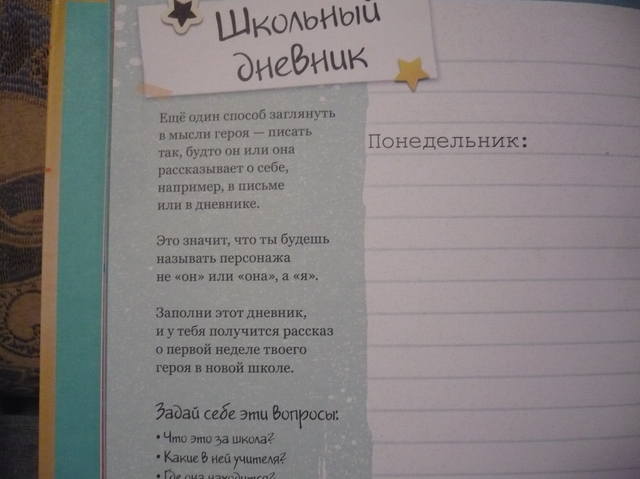 Школьный
дневник
Ещё один способ заглянуть
в мысли героя — писать
так, будто он или она
рассказывает о себе,
например, в письме
или в дневнике.
Это значит, что ты будешь
называть персонажа
не «он» или «она», а «я».
Заполни этот дневник,
и у тебя получится рассказ
о первой неделе твоего
героя в новой школе.
Задай себе эти вопросы:
• Что это за школа?
• Какие в ней учителя?
• Где она находится?
Понедельник: